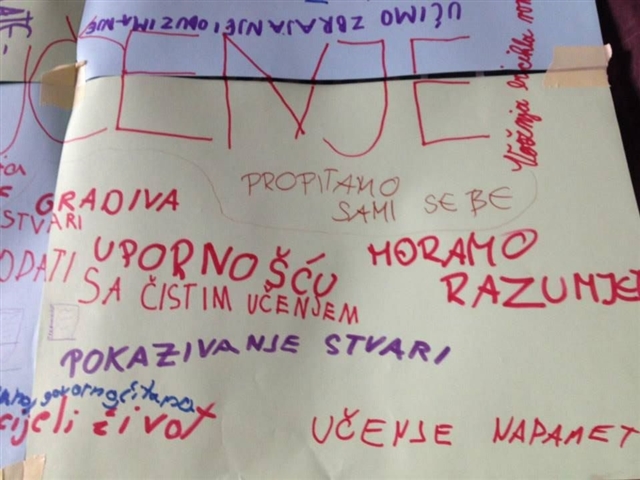 UČIMO ZBRAJANJE I ODUZIMANJE
UČENJE
PROPITAMO
SAMI SEBE
GRADIVA
STVARI
UPORNOŠĆU
SA ČISTIM UČENJEM
MORAMO
RAZUMJE
ODATI
POKAZIVANJE STVARI
cijeli život
UČENJE NAPAMET